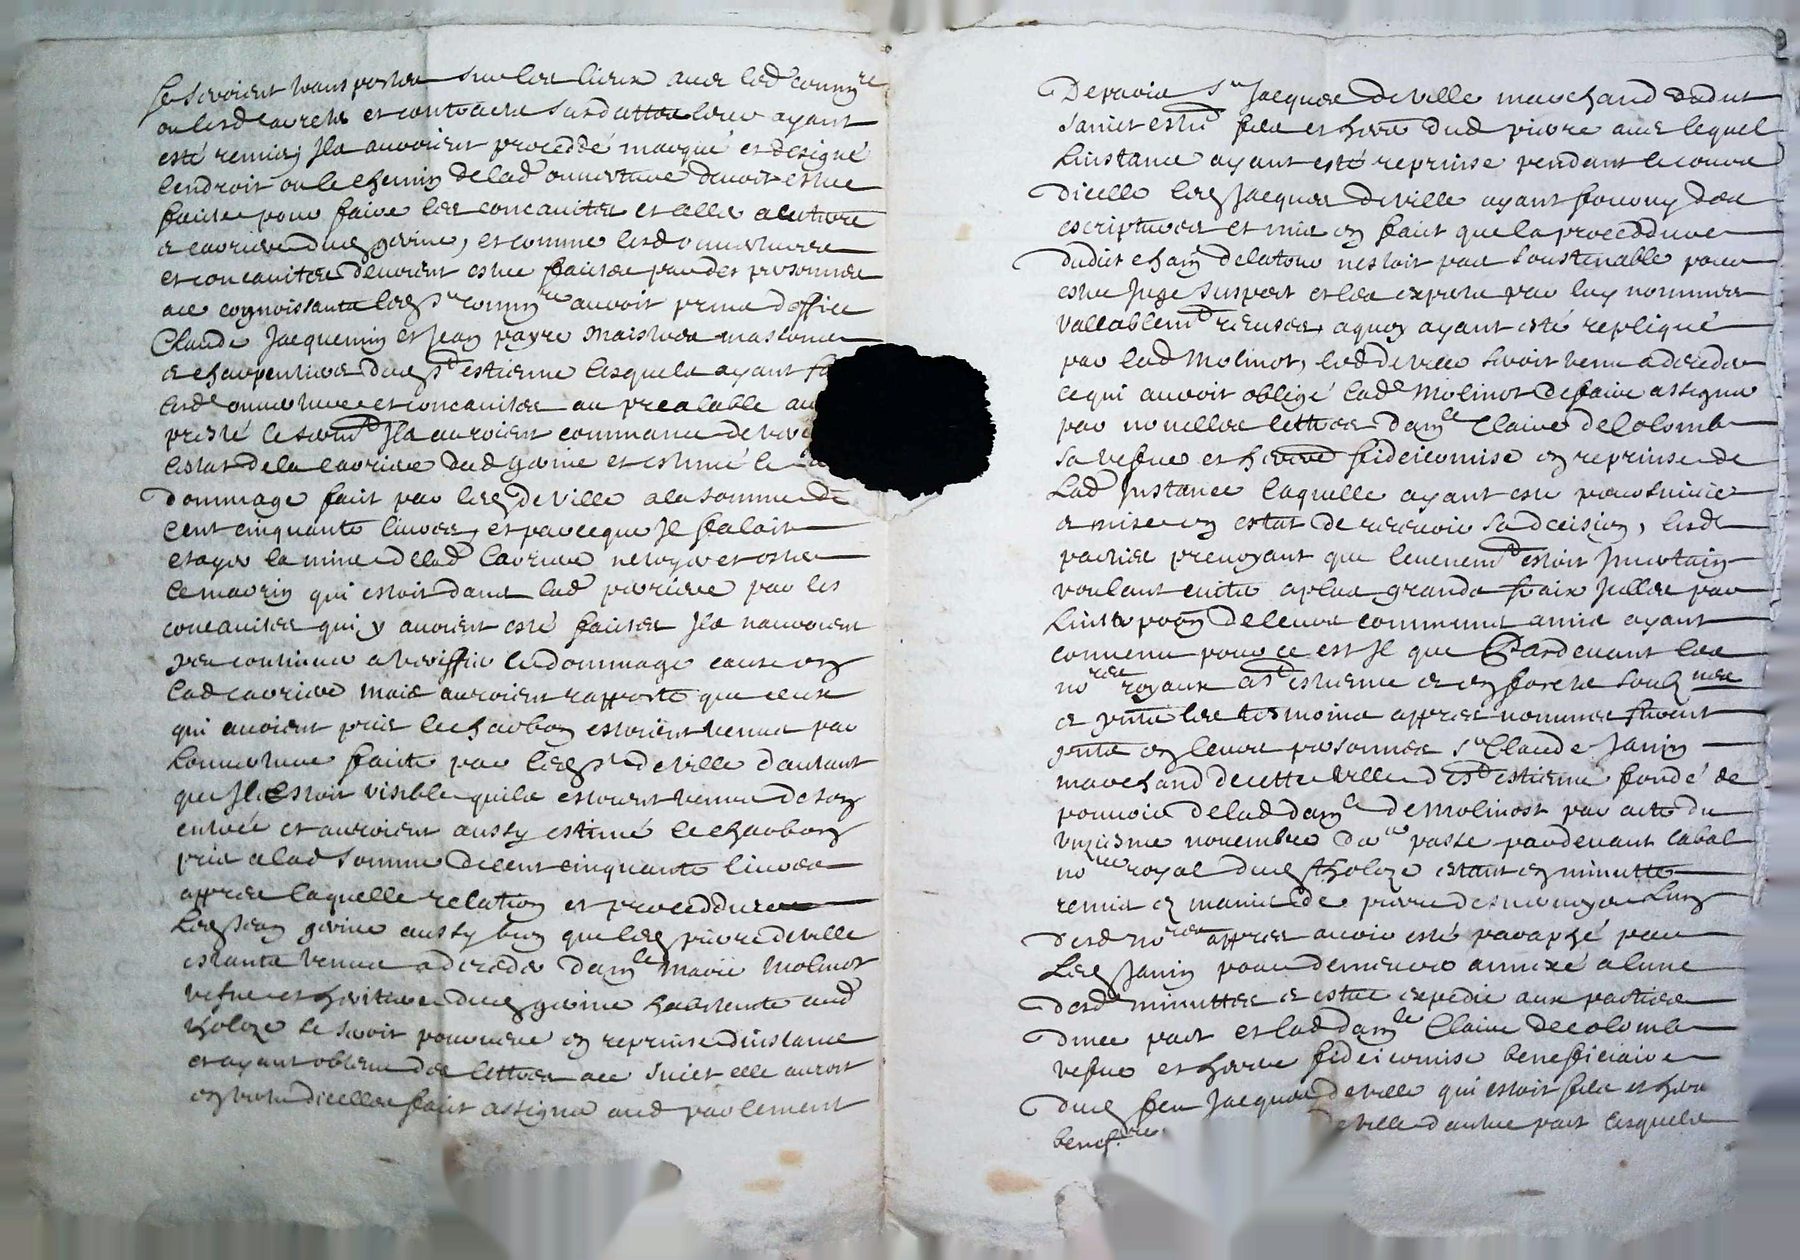 se seroient transportes sur les lieux avec led commre
ou lesd expertz et contraires sur ducttes leur ayant
esté remis, Ils auroient proceddé marqué et designé
lendroit ou le chemin de lad ouverture devoit estre
faitte pour faire les concavites et aller
a carriere dud gerine, et comme lesd ouvertures
et concavites devoient estre faites par des personnes
ace cognoissants led sr commre auroit prins doffice
Claude Jacquemin et Jean payre maistres massons
et charpentiers dud st estienne lesquels ayant
lesd ouvertures et concavites au prealable
presté le sermt Ils auroient commance de
lestat de la carriere dud gerine et estimé le
dommage fait par led deville a la somme de
cent cinquante livres, et parceque Il faloit
etayer la mine de lad carriere netoyer et oster
le marrin qui estoit dans lad perriere par les
concavites qui y avoient esté faites Ils nauroient
peu continuer a veriffier le dommage cause en
lad carriere mais auroient rapporté que ceux
qui avoient pris le charbon estoient venus par
louverture faite par led sr deville dautant
que Il estoit visible quils estoient venus de son
entrée et auroient aussy estimé le charbon
pris a lad somme de cent cinquante livres
appres laquelle relation et proceddure
led Jean gerine aussy bien que led pierre deville
estants venus a deceder damlle Marie Molinot
vefve et heritiere dud gerine habitante aud
tholoze se seroit pourveue en reprinse dinstance
et ayant obtenu des lettres ace sujet elle auroit
en vertu dicelles fait assigner aud parlement
De paris sr Jacques deville marchand dudit
saint estne fils et here dud pierre avec lequel
linstance ayant esté reprinse pendant le cours
dicelle led Jacques deville ayant fourny des
escriptures et mis en fait que la proceddure
dudit chain delatour nestoit pas soustenable pour
estre juge suspect et les expers par luy nommes
vallablemt recusés, a quoy ayant esté repliqué
par lad Molinot, led deville seroit venu a deceder
ce qui auroit obligé lad Molinot de faire assigner
par nouvelles lettres damlle Claire de Colomb
sa vefve et here fideicomise en reprinse de
Lad Instance laquelle ayant esté poursuivie
et mise en estat de recevoir sa decision, lesd
parties prevoyant que levenemt estoit Incertain
voulant eviter a plus grands fraix Icelles par
linterpoon de leurs communs amis ayant
convenu pour ce est Il que Pardevant les
nores royaux a st estienne et en forests soubz nes
et pnts les tesmoins appres nommes furent
pnts en leurs personnes sr Claude Janin
marchand de cette ville de st estienne fondé de
pouvoir de lad damlle de Molinost par acte du
unziesme novembre der passe pardevant Cabal
nore royal dud tholoze estant en minutte
remis ez mains de pierre desverneys Lun
desd nores appres avoir esté paraphé par
Led Janin pour demeurer annexé a lune
desd minuttes et estre expedie aux parties
dune part et lad damlle Claire de colomb
vefve et here fideicomise beneficiaire
dud feu Jacques deville qui estoit fils et here
benefre deville dautre part lesquels